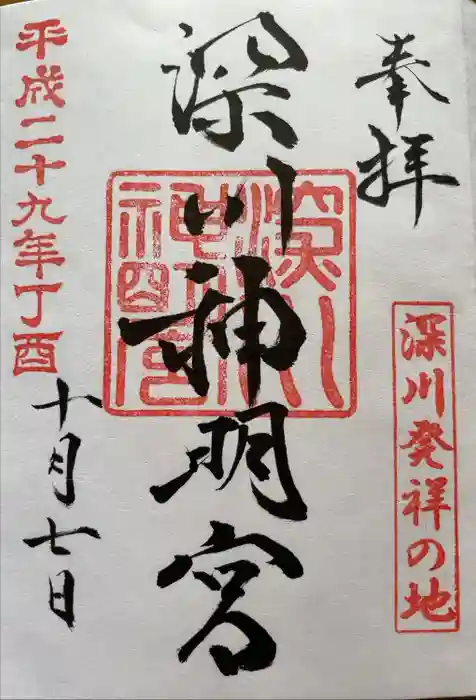 奉拝
深川発祥の地
深川神明宮
深川神明宮
平成二十九年丁酉
十月七日